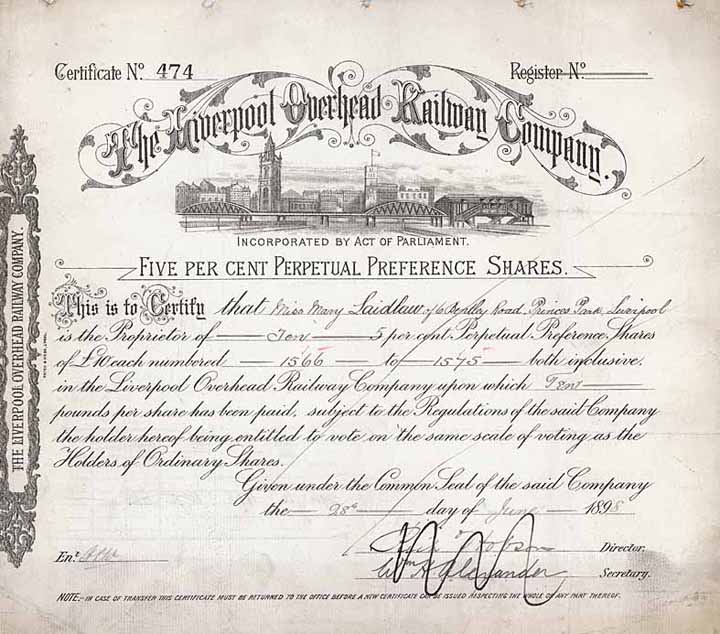 Certificate No. 474
Register No.
The Liverpool Overhead Railway Company.
INCORPORATED BY ACT OF PARLIAMENT.
FIVE PER CENT PERPETUAL PREFERENCE SHARES.
This is to Certify that Miss Mary Laidlaw of 6 Road, Princes Park, Liverpool
is the Proprietor of Ten 5 per cent. Perpetual Preference Shares
of £10 each numbered 1566 to 1575 both inclusive,
in the Liverpool Overhead Railway Company upon which Ten
pounds per share has been paid, subject to the Regulations of the said Company
the holder hereof being entitled to vote on the same scale of voting as the
Holders of Ordinary Shares.
Given under the Common Seal of the said Company
the 28th day of June 1898
Director.
Ent.
Wm Alexander Secretary.
NOTE:- IN CASE OF TRANSFER THIS CERTIFICATE MUST BE RETURNED TO THE OFFICE BEFORE A NEW CERTIFICATE CAN BE ISSUED RESPECTING THE WHOLE OR ANY PART THEREOF.
THE LIVERPOOL OVERHEAD RAILWAY COMPANY.